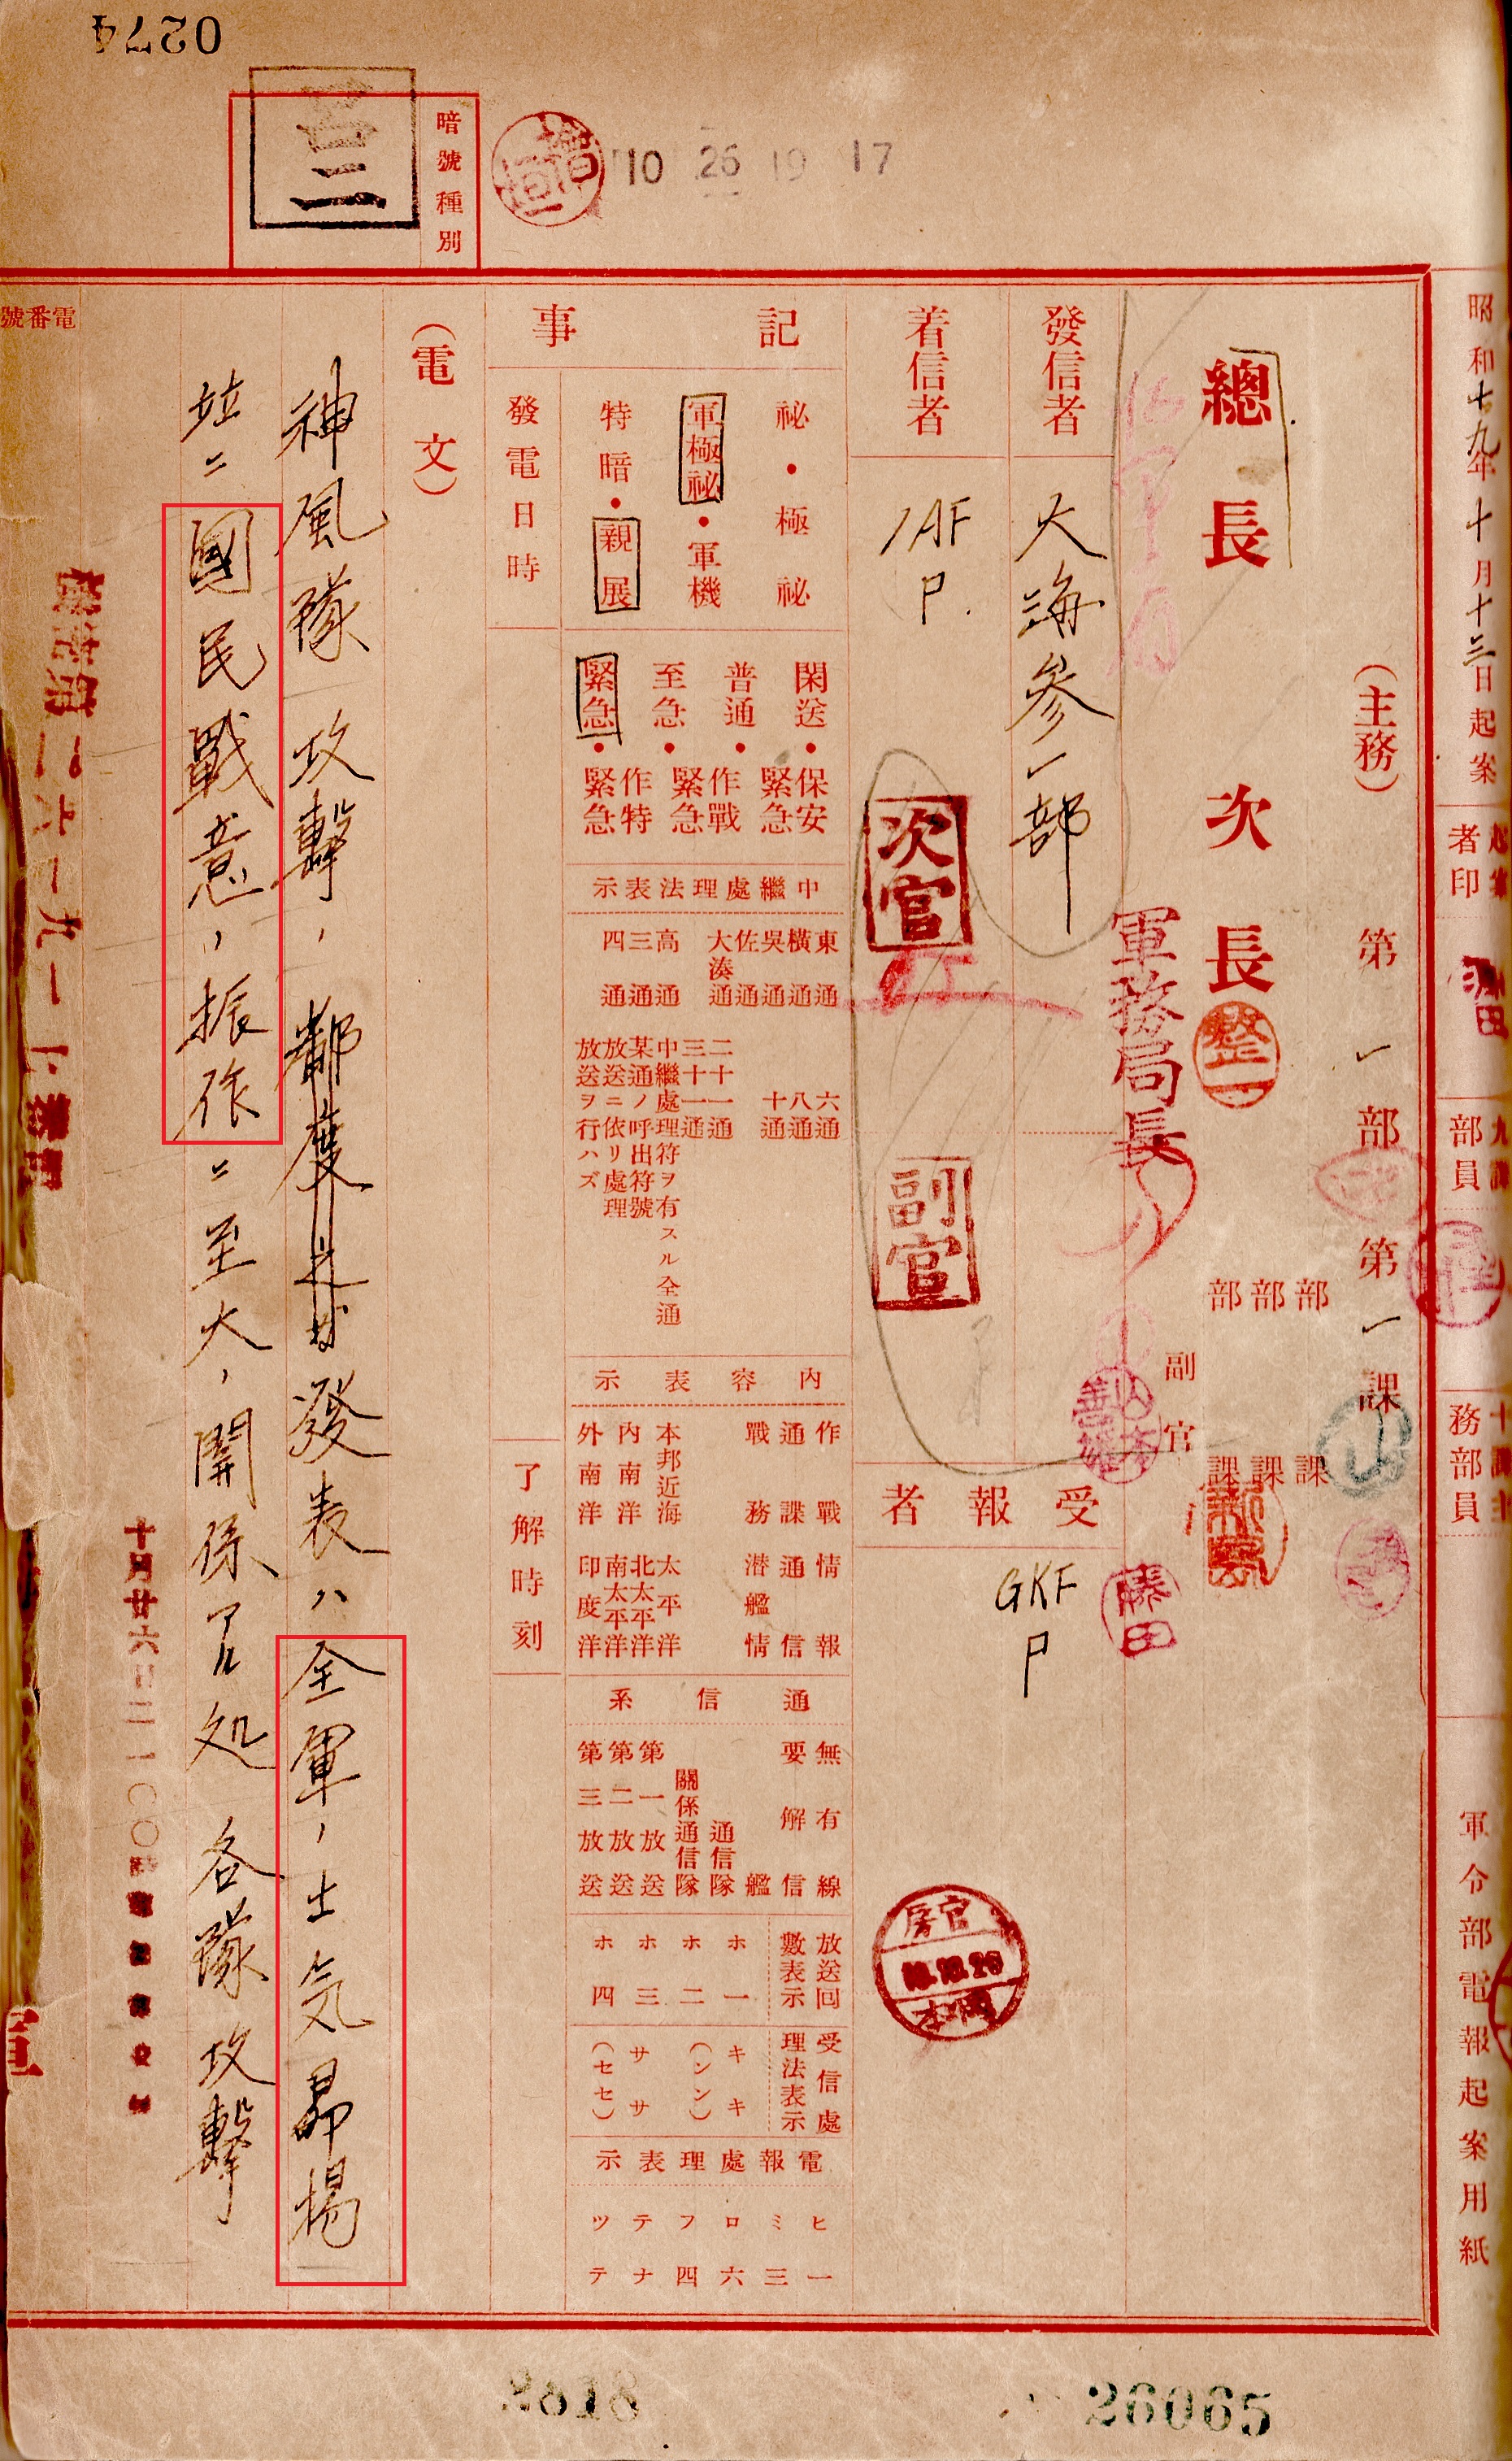 0274
暗號種別
10 26 19 17
昭和十九年十月十三日起案
者印
部員
務部員
軍令部電報起案用紙
(主務) 第一部第一課
總長 次長
部部部
課課課
副官
軍務局長
發信者 大海參一部
着信者 1AF P.
次官
副官
受報者 GKF P
官房
記事
秘・極秘
軍極秘・軍機
特暗・親展
閑送・保安緊急
普通・作戰緊急
至急・作特緊急
緊急
中繼處理法表示
東通 横通 呉通 佐通 大湊通
高通 三通 四通
六通 八通 十通
二十一通 三十一通
中繼處理符ヲ有スル全通
某通ノ呼出符號
放送ニ依リ處理
放送ヲ行ハズ
内容表示
作戰情報
通諜通信
戰務潜艦情
本邦近海太平洋
内南洋北太平洋
外南洋南太平洋
印度洋
通信系
無有線
要解信
艦
通信隊
關係通信隊
第一放送
第二放送
第三放送
放送回數表示
ホ一
ホ二
ホ三
ホ四
受信處理法表示
キキ
(ンン)
ササ
(セセ)
電報處理表示
ヒ一
ミ三
ロ六
フ四
テナ
ツテ
發電日時
了解時刻
(電文)
神風隊攻撃ノ發表ハ全軍ノ士気昂揚
竝ニ國民戰意ノ振作ニ至大ノ關係アル処 各隊攻撃
十月廿六日二一〇〇
電番號
26065